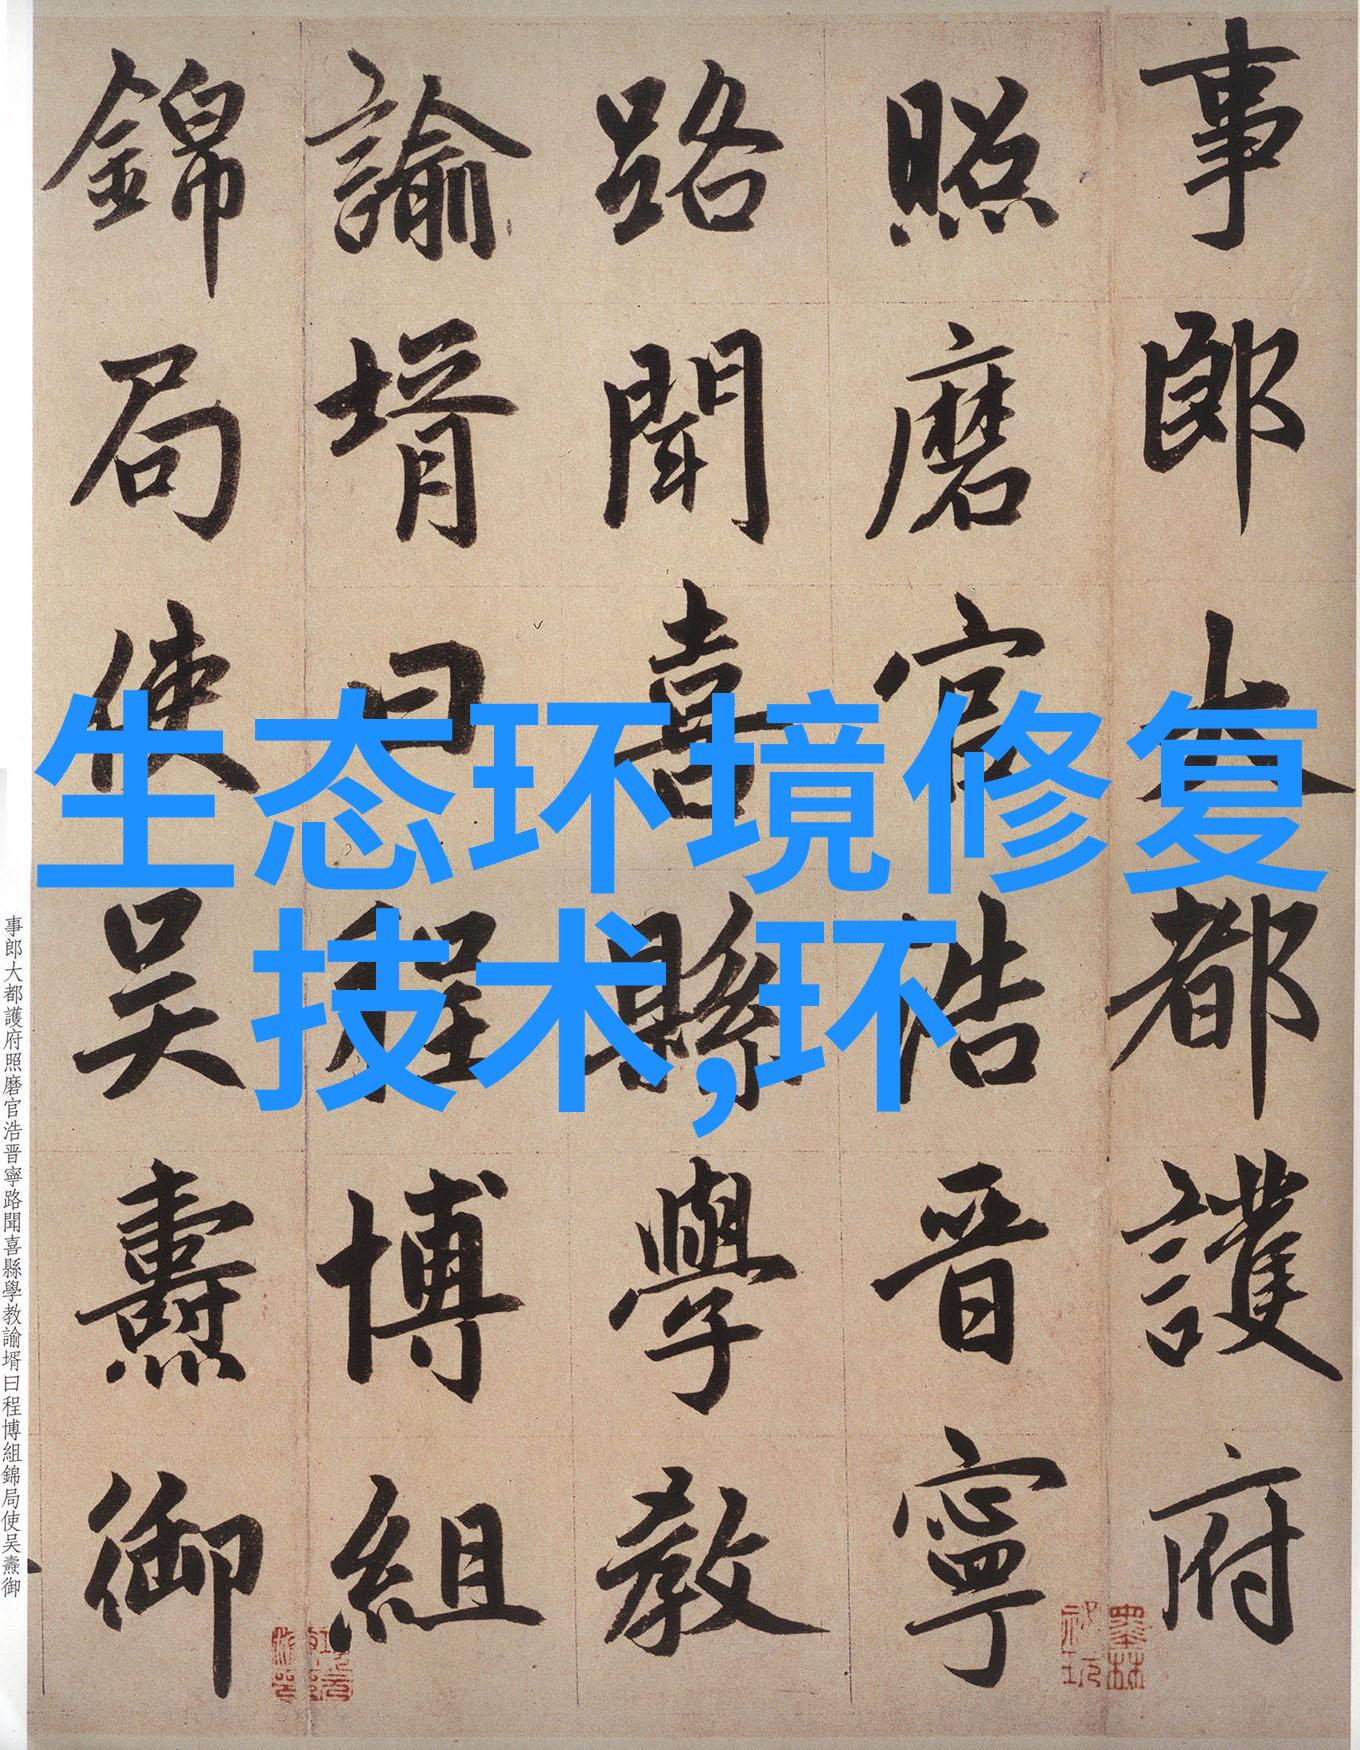 事郎大都護府
照磨官浩晉寧
路聞喜縣學教
諭壻曰程博組
錦局使吴燾御
生态环境修复
技术,环
事郎大都護府照磨官浩晋寧路聞喜縣學教諭壻曰程博組錦局使吴燾御